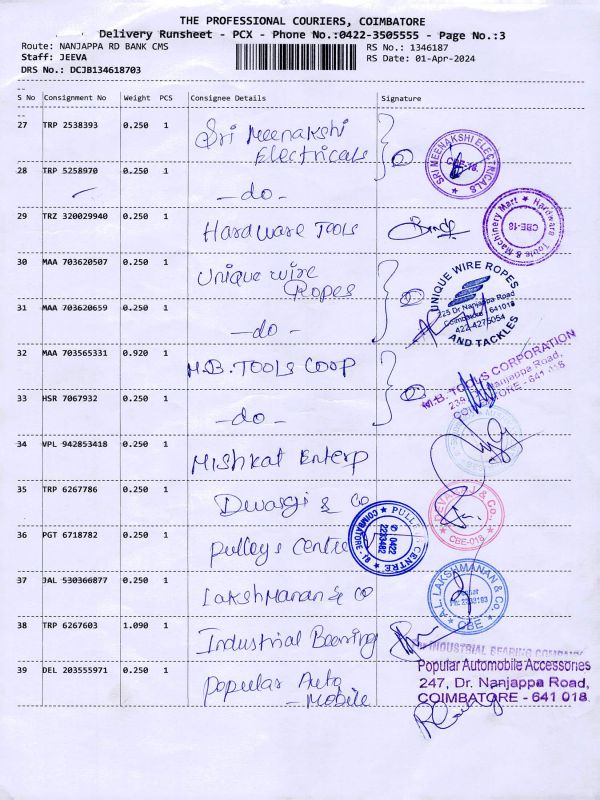 THE PROFESSIONAL COURIERS, COIMBATORE
Delivery Runsheet - PCX - Phone No.:0422-3505555 - Page No.:3
Route: NANJAPPA RD BANK CMS RS No.: 1346187
Staff: JEEVA RS Date: 01-Apr-2024
DRS No.: DCJB134618703
S No Consignment No Weight PCS Consignee Details Signature
27 TRP 2538393 0.250 1 Sri Meenakshi
Electricals 2
SRI MEENAKSHI ELECTRICALS CBE-18.
28 TRP 5258970 0.250 1 -do-
29 TRZ 320029940 0.250 1 Hardware Tools
Hardware Tools & Machinery Mart CBE-18
30 MAA 703620507 0.250 1 Unique wire
Ropes 2
UNIQUE WIRE ROPES
225 Dr Nanjappa Road
Coimbatore - 641018
422-4275054
AND TACKLES
31 MAA 703620659 0.250 1 -do-
32 MAA 703565331 0.920 1 M.B. TOOLS COOP
M.B. TOOLS CORPORATION
239, Dr. Nanjappa Road,
COIMBATORE - 641 018
33 HSR 7067932 0.250 1 -do- 2
34 VPL 942853418 0.250 1 Mishkat Enterp
35 TRP 6267786 0.250 1 Dwargi & Co
& Co., CBE-018
36 PGT 6718782 0.250 1 Pulleys Centre
PULLEY CENTRE COIMBATORE - 18
0422
2233482
37 JAL 530366877 0.250 1 Lakshmanan & Co
A.L. LAKSHMANAN & CO. CBE
38 TRP 6267603 1.090 1 Industrial Bearing
INDUSTRIAL BEARING COMPANY
39 DEL 203555971 0.250 1 Popular Auto
- Mobile
Popular Automobile Accessories
247, Dr. Nanjappa Road,
COIMBATORE - 641 018.